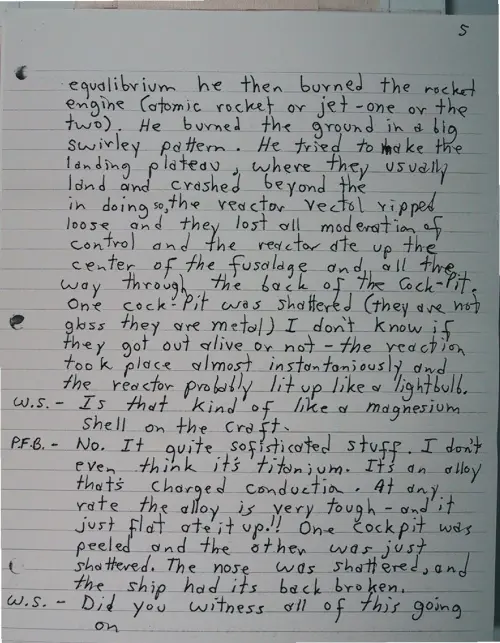 5
equalibrium he then burned the rocket
engine (atomic rocket or jet-one or the
two). He burned the ground in a big
swirley pattern. He tried to make the
landing plateau, where they usually
land and crashed beyond the
in doing so, the reactor vectol ripped
loose and they lost all moderation of
control and the reactor ate up the
center of the fusalage and all the
way through the back of the Cock-Pit.
One cock-Pit was shattered (they are not
glass they are metal) I don't know if
they got out alive or not - the reaction
took place almost instantaniously and
the reactor probably lit up like a lightbulb.
W.S. - Is that kind of like a magnesium
shell on the craft.
P.F.B. - No. It quite sofisticated stuff. I don't
even think it's titanium. It's an alloy
that's charged conduction. At any
rate the alloy is very tough - and it
just flat ate it up!! One Cockpit was
peeled and the other was just
shattered. The nose was shattered, and
the ship had its back broken.
W.S. - Did you witness all of this going
on